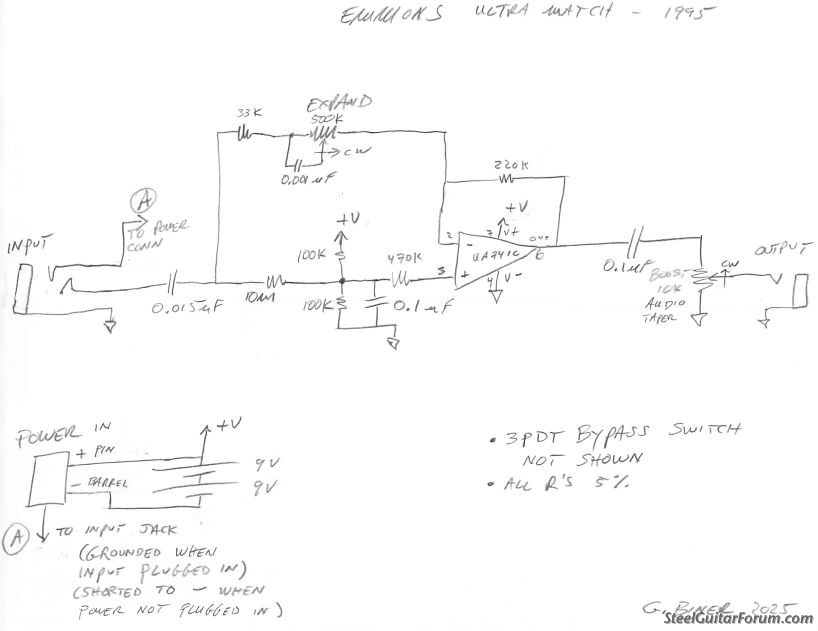 EMMONS ULTRA MATCH - 1995
EXPAND
33K
500K
CW
0.001uF
220K
+V
A
TO POWER
CONN
+V
INPUT
100K
470K
2
7
V+
OUT
UA741C
6
3
+
4
V-
0.015uF
10M
100K
0.1uF
0.1uF
BOOST
10K
AUDIO
TAPER
CW
OUTPUT
POWER IN
+ PIN
- BARREL
+V
9V
9V
A
TO INPUT JACK
(GROUNDED WHEN
INPUT PLUGGED IN)
(SHORTED TO - WHEN
POWER NOT PLUGGED IN)
• 3PDT BYPASS SWITCH
NOT SHOWN
• ALL R'S 5%
G. BINER 2025
SteelGuitarForum.com